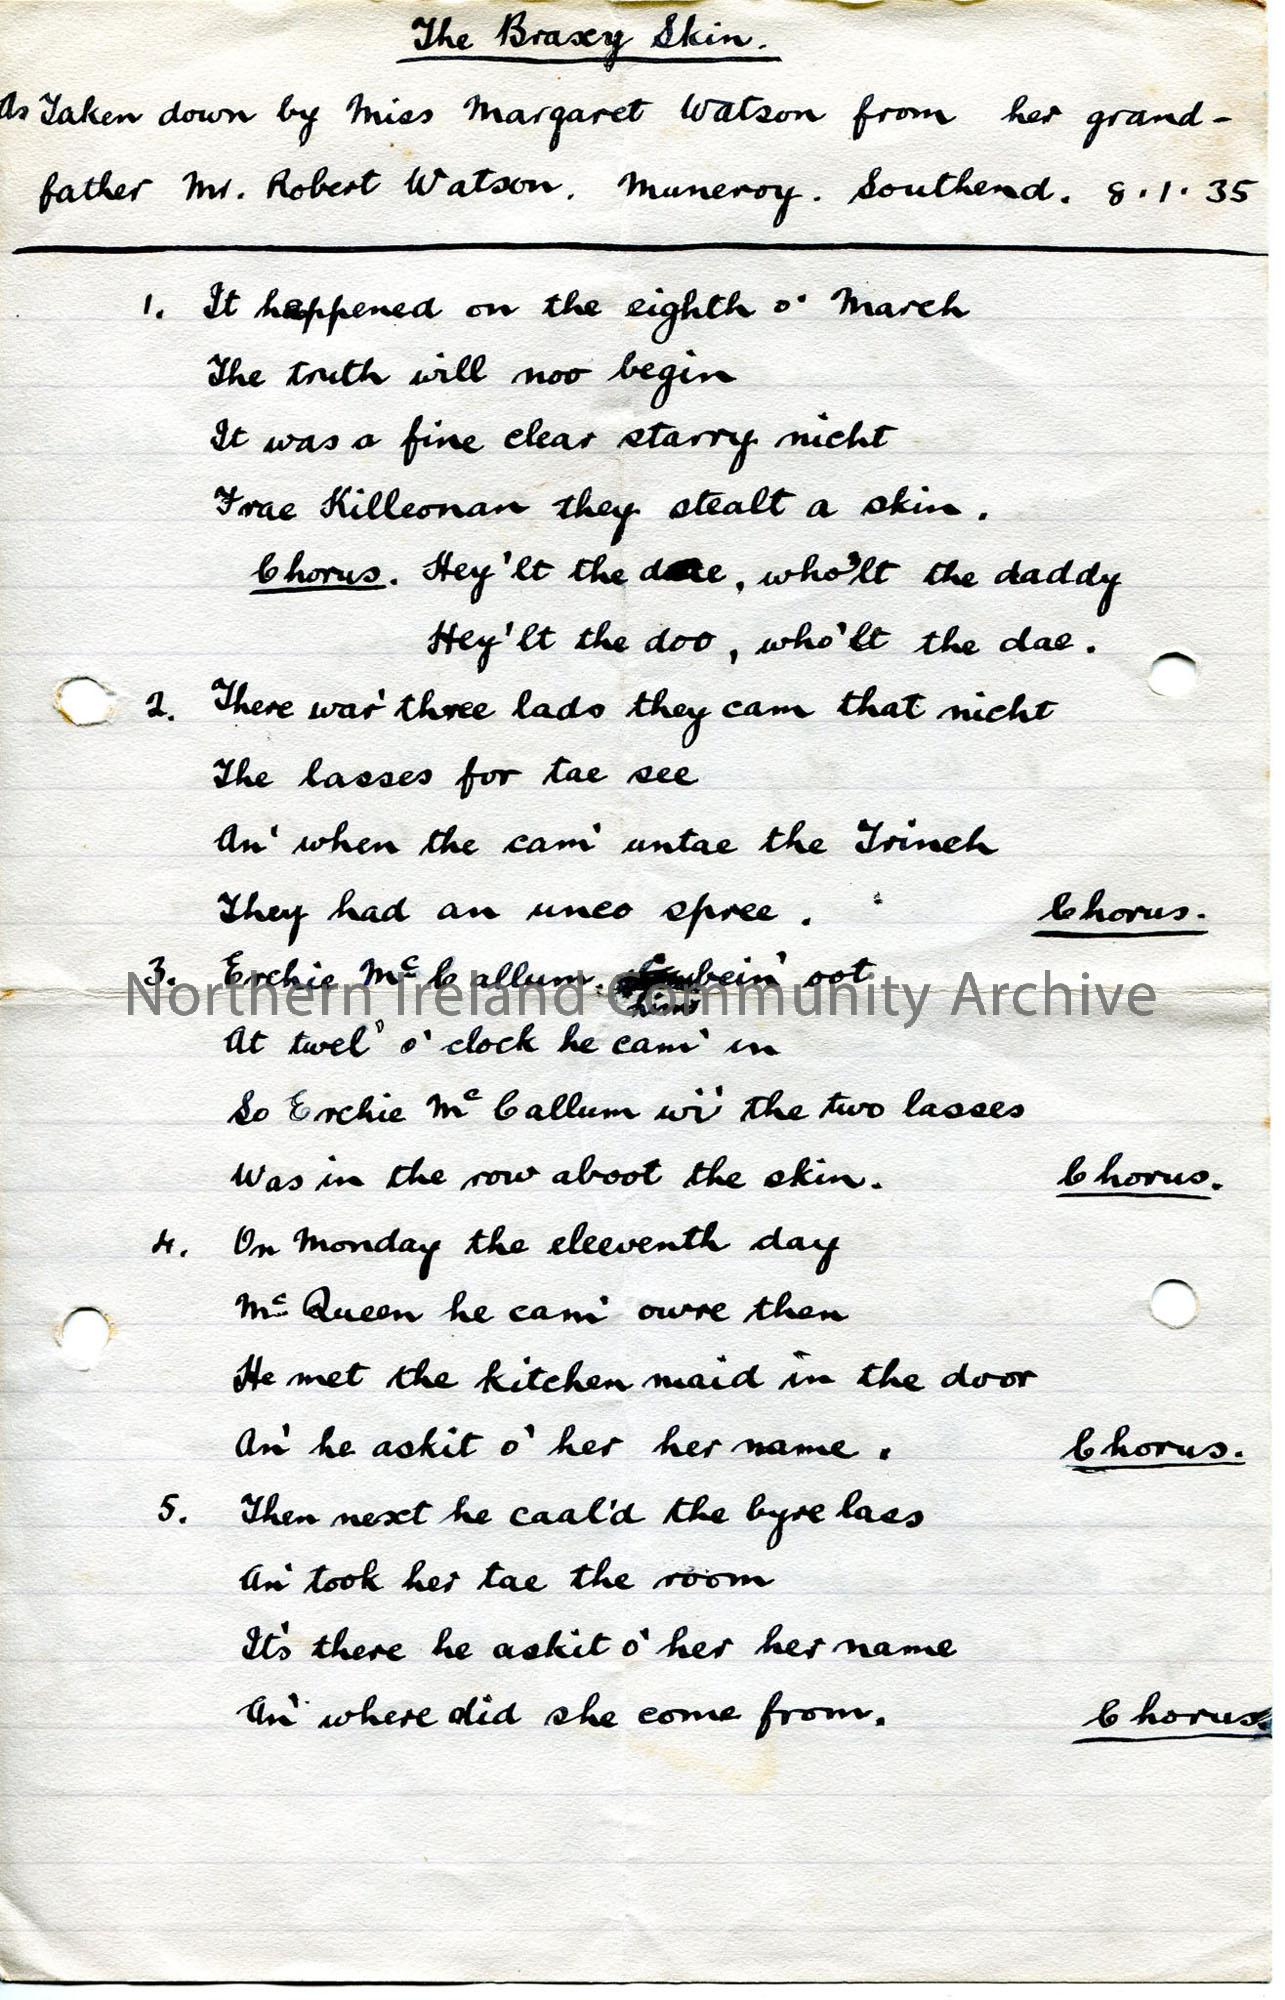 The Braxy Skin.
As Taken down by Miss Margaret Watson from her grand-
father Mr. Robert Watson. Muneroy. Southend. 8.1.35
1. It happened on the eighth o' March
The truth will noo begin
It was a fine clear starry nicht
Frae Killeonan they stealt a skin.
Chorus. Hey'lt the dae, who'lt the daddy
Hey'lt the doo, who'lt the dae.
2. There war' three lads they cam that nicht
The lasses for tae see
An' when the cam' untae the Trinch
They had an unco spree. Chorus.
3. Erchie McCallum bein' oot
At twel' o' clock he cam' in
So Erchie McCallum wi' the two lasses
Was in the row aboot the skin. Chorus.
4. On Monday the eleeventh day
McQueen he cam' owre then
He met the kitchen maid in the door
An' he askit o' her her name. Chorus.
5. Then next he caal'd the byre lass
An' took her tae the room
It's there he askit o' her her name
An' where did she come from. Chorus.
Northern Ireland Community Archive